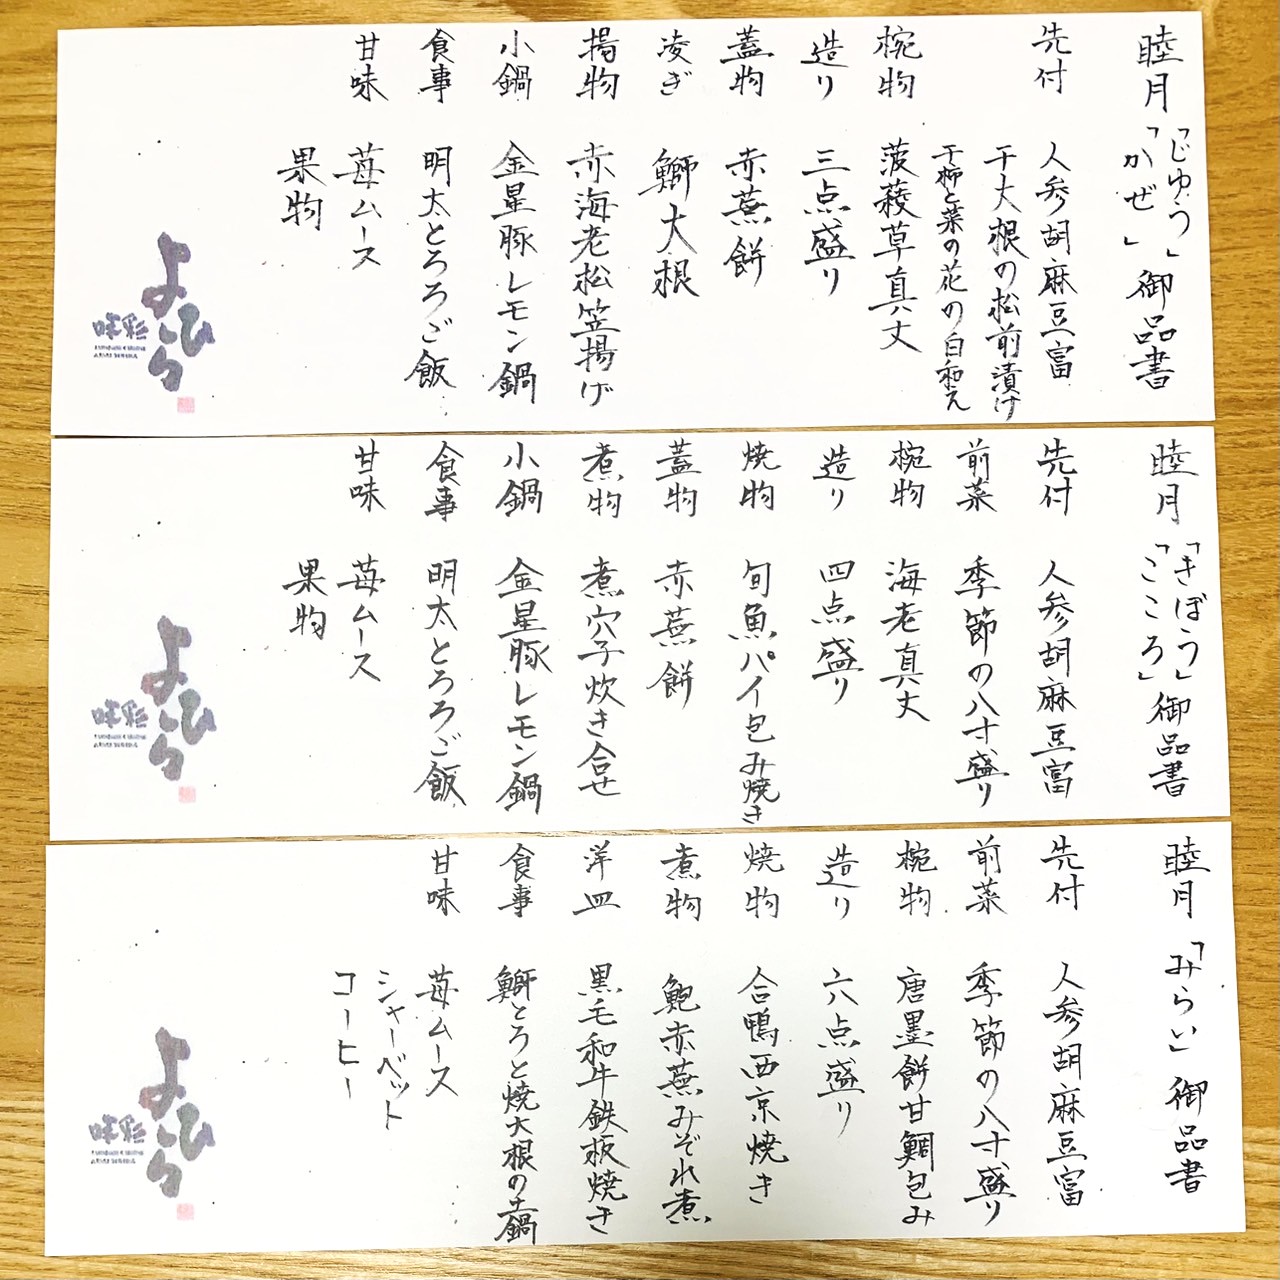 睦月「じゆう」「かぜ」御品書
先付 人参胡麻豆富
干大根の松前漬け
干柿と菜の花の白和え
椀物 菠薐草真丈
造り 三点盛り
蓋物 赤蕪餅
凌ぎ 鰤大根
揚物 赤海老松笠揚げ
小鍋 金星豚レモン鍋
食事 明太とろろご飯
甘味 苺ムース
果物
味彩
よひら
睦月「きぼう」「こころ」御品書
先付 人参胡麻豆富
前菜 季節の八寸盛り
椀物 海老真丈
造り 四点盛り
焼物 旬魚パイ包み焼き
蓋物 赤蕪餅
煮物 煮穴子炊き合せ
小鍋 金星豚レモン鍋
食事 明太とろろご飯
甘味 苺ムース
果物
味彩
よひら
睦月「みらい」御品書
先付 人参胡麻豆富
前菜 季節の八寸盛り
椀物 唐墨餅甘鯛包み
造り 六点盛り
焼物 合鴨西京焼き
煮物 鮑赤蕪みぞれ煮
洋皿 黒毛和牛鉄板焼き
食事 鰤とろと焼大根の土鍋
甘味 苺ムース
シャーベット
コーヒー
味彩
よひら